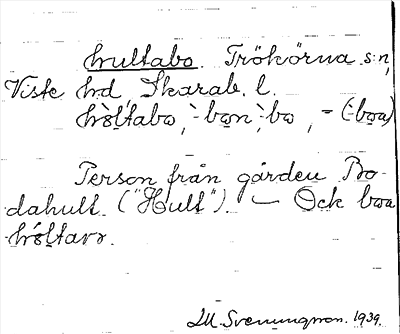 hultabo. Trökörna s:n,
Viste hd Skarab. l.
hòltabo, -bon, -bo, - (-boa)
Person från gården Bo-
dahult. ("Hult"). — Ock boa
hóltavs.
M. Svenungson. 1939.